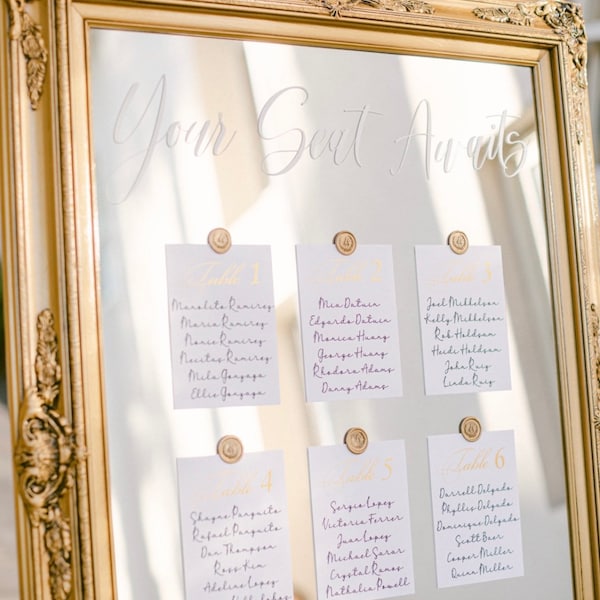 Your Seat Awaits
Table 1
Manolito Ramirez
Maria Ramirez
Monic Ramirez
Necitas Ramirez
Mila Gonzaga
Ellis Gonzaga
Table 2
Mia Datuin
Edgardo Datuin
Monica Huang
George Huang
Rhodora Adams
Danny Adams
Table 3
Joel Mikkelson
Kelly Mikkelson
Rob Holdson
Heidi Holdson
John Ruiz
Linda Ruiz
Table 4
Shayne Panguito
Rafael Panguito
Dan Thompson
Ross Kim
Adeline Lopez
Table 5
Sergio Lopez
Victoria Ferrer
Juan Lopez
Michael Saror
Crystal Ramos
Nathalia Powell
Table 6
Darrell Delgado
Phyllis Delgado
Dominique Delgado
Scott Baer
Cooper Miller
Quinn Miller